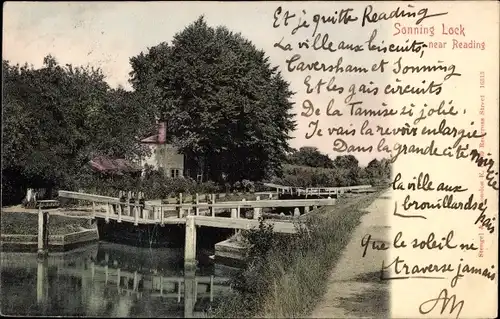 Sonning Lock
near Reading
Et je quitte Reading
La ville aux biscuits,
Caversham et Sonning
Et les gais circuits
De la Tamise si jolie.
Je vais la revoir en large
Dans la grande cité
La ville aux
brouillards
que le soleil ne
traverse jamais